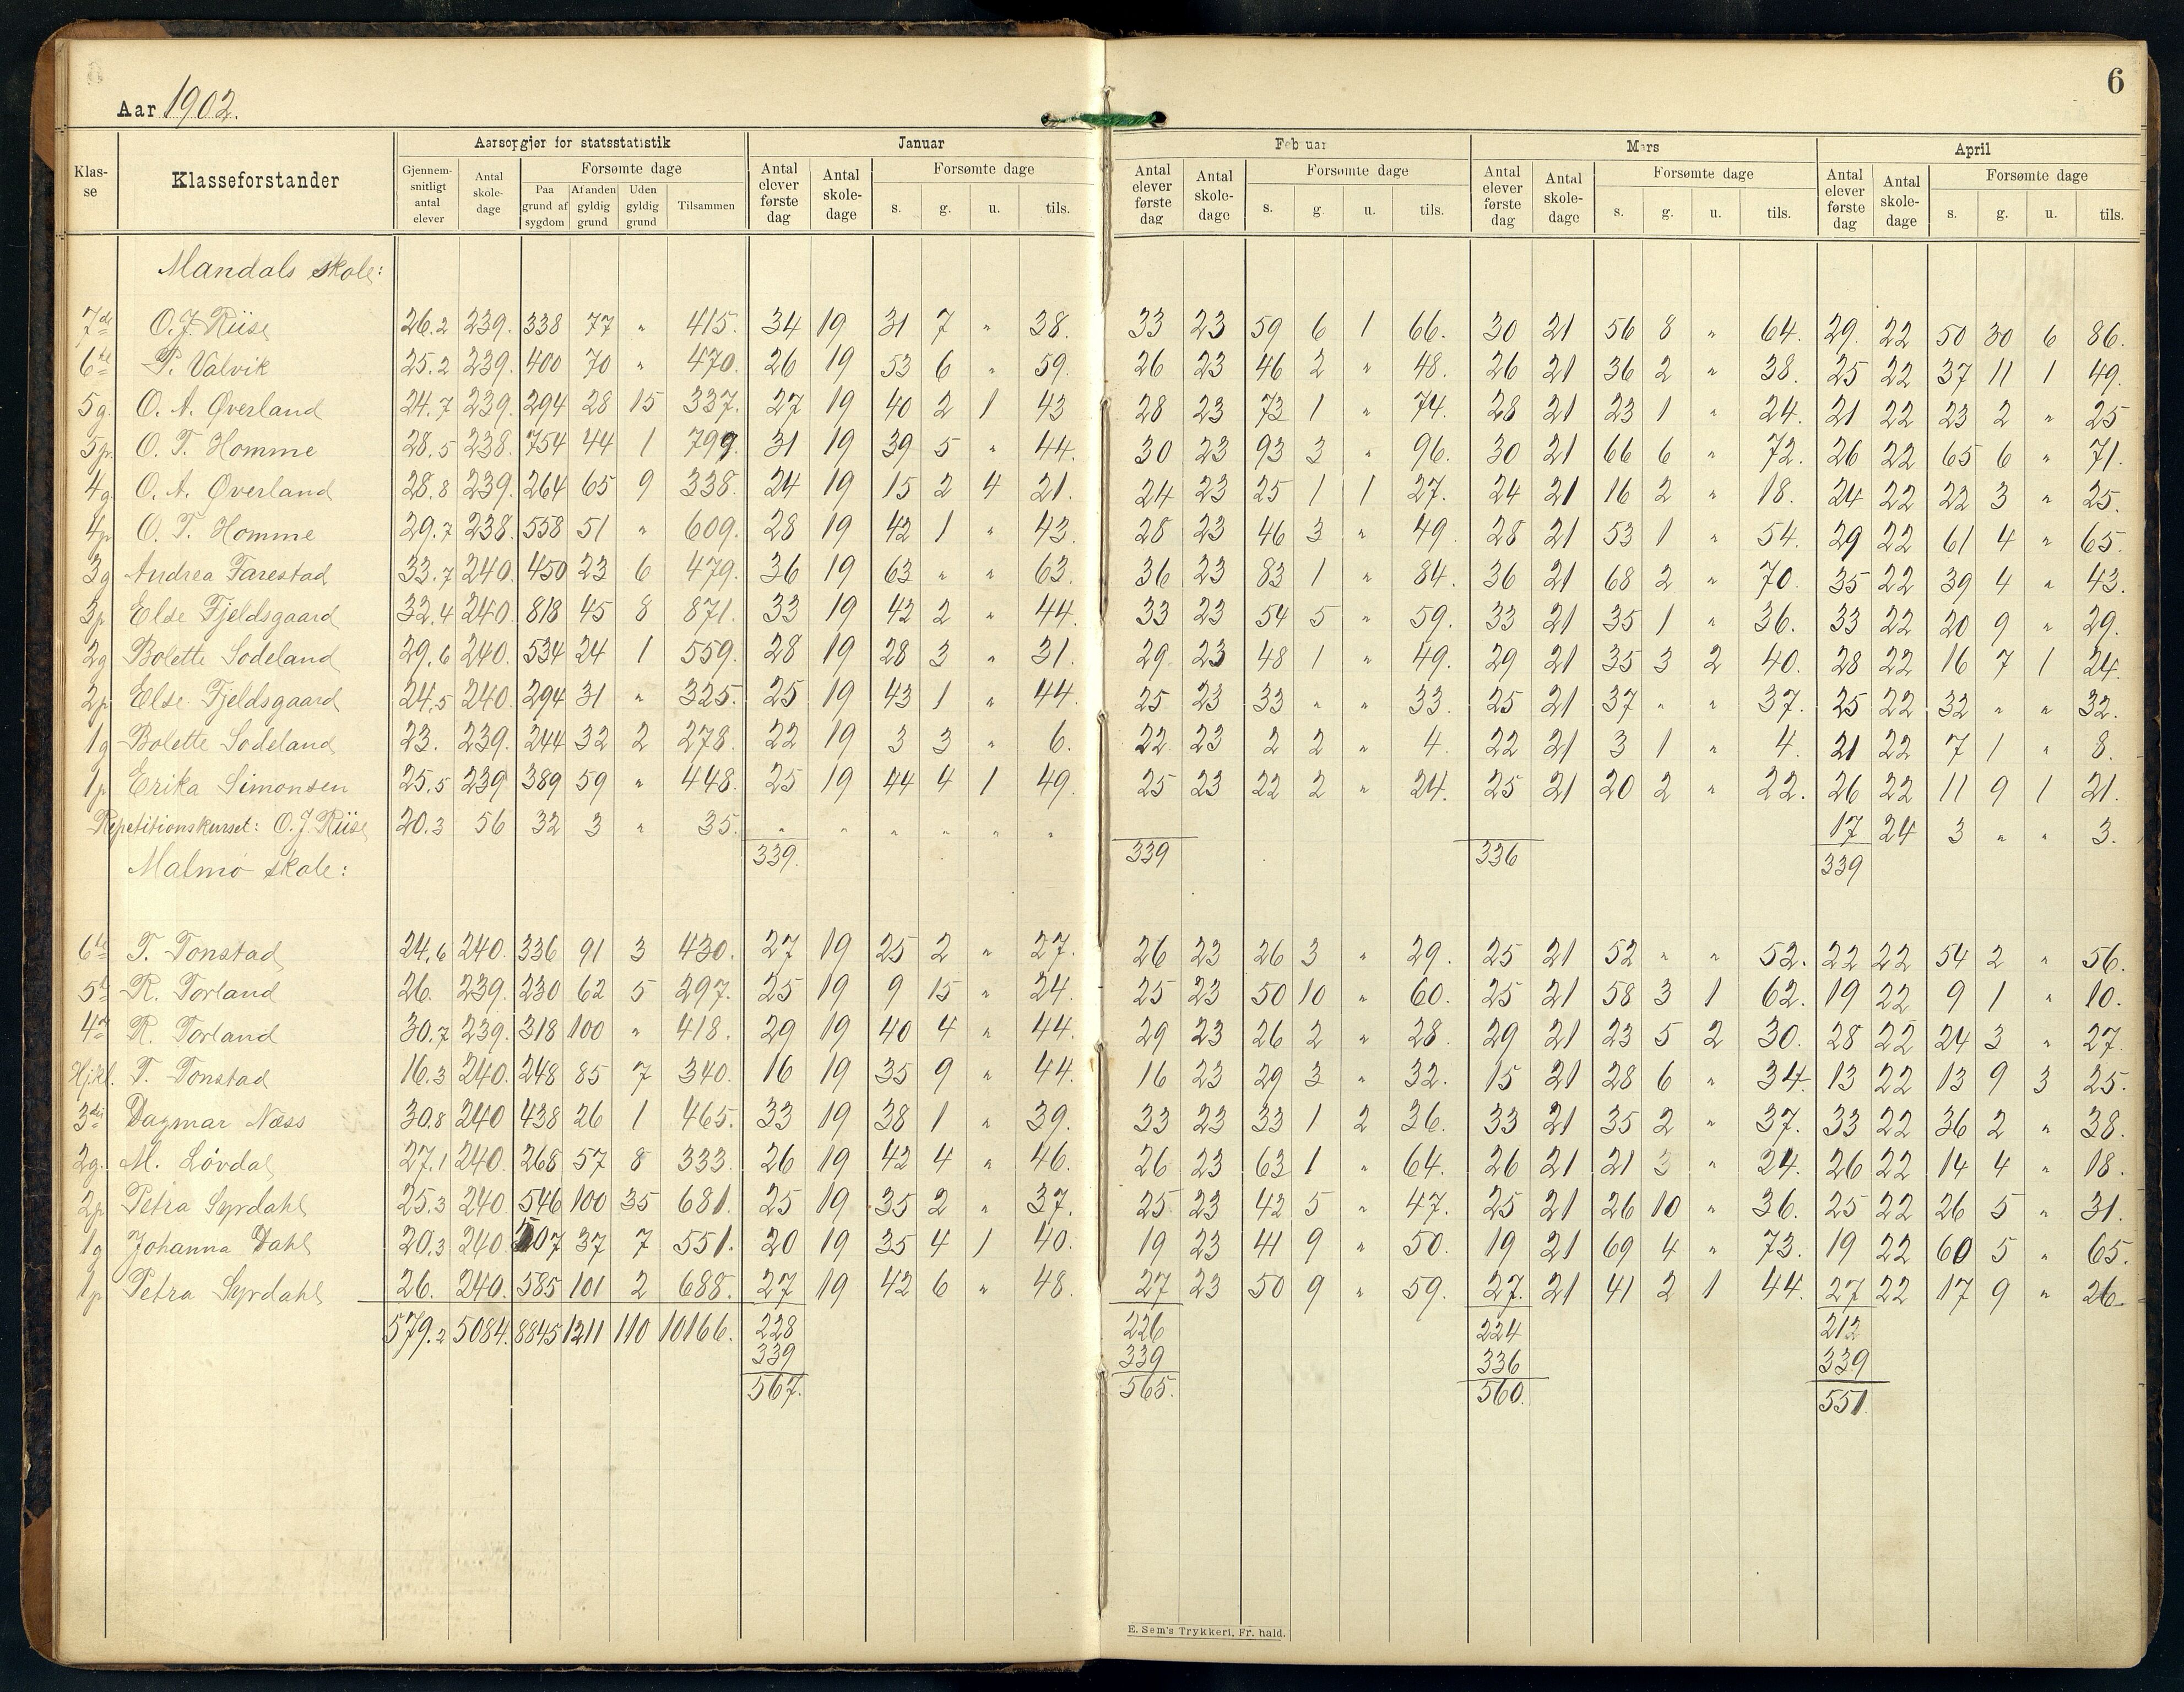 6
Aar 1902.
Klasse | Klasseforstander | Aarsopgjør for statsstatistik | Januar | Februar | Mars | April
Gjennemsnitligt antal elever | Antal skoledage | Forsømte dage | Paa grund af sygdom | Af anden gyldig grund | Uden gyldig grund | Tilsammen | Antal elever første dag | Antal skoledage | Forsømte dage | s. | g. | u. | tils. | Antal elever første dag | Antal skoledage | Forsømte dage | s. | g. | u. | tils. | Antal elever første dag | Antal skoledage | Forsømte dage | s. | g. | u. | tils. | Antal elever første dag | Antal skoledage | Forsømte dage | s. | g. | u. | tils.
Mandals skole:
7de O. J. Riise 26.2 239. 338 77 " 415. 34 19 31 7 " 38. 33 23 59 6 1 66. 30 21 56 8 " 64. 29. 22 50 30 6 86.
6te P. Valvik 25.2 239. 400 70 " 470. 26 19 53 6 " 59. 26 23 46 2 " 48. 26 21 36 2 " 38. 25 22 37 11 1 49.
5g. O. A. Øverland 24.7 239. 294 28 15 337. 27 19 40 2 1 43 28 23 73 1 " 74. 28 21 23 1 " 24. 21 22 23 2 " 25
5p. O. T. Homme 28.5 238. 754 44 1 799. 31 19 39 5 " 44. 30 23 93 3 " 96. 30 21 66 6 " 72. 26 22 65 6 " 71.
4g. O. A. Øverland 28.8 239. 264 65 9 338. 24 19 15 2 4 21. 24 23 25 1 1 27. 24 21 16 2 " 18. 24 22 22 3 " 25.
4p O. T. Homme 29.7 238. 558 51 " 609. 28 19 42 1 " 43. 28 23 46 3 " 49. 28 21 53 1 " 54. 29 22 61 4 " 65.
3g Andrea Farestad 33.7 240. 450 23 6 479. 36 19 63 " " 63. 36 23 83 1 " 84. 36 21 68 2 " 70. 35 22 39 4 " 43.
3p Else Fjeldsgaard 32.4 240. 818 45 8 871. 33 19 42 2 " 44. 33 23 54 5 " 59. 33 21 35 1 " 36. 33 22 20 9 " 29.
2g Bolette Sodeland 29.6 240. 534 24 1 559. 28 19 28 3 " 31. 29 23 48 1 " 49. 29 21 35 3 2 40. 28 22 16 7 1 24.
2p Else Fjeldsgaard 24.5 240. 294 31 " 325. 25 19 43 1 " 44. 25 23 33 " " 33. 25 21 37 " " 37. 25 22 32 " " 32.
1g Bolette Sodeland 23. 239. 244 32 2 278. 22 19 3 3 " 6. 22 23 2 2 " 4. 22 21 3 1 " 4. 21 22 7 1 " 8.
1p Erika Simonsen 25.5 239 389 59 " 448. 25 19 44 4 1 49. 25 23 22 2 " 24. 25 21 20 2 " 22. 26 22 11 9 1 21.
Repetitionskurset: O. J. Riise 20.3 56 32 3 " 35. " " " " " " 17 24 3 " " 3.
339. 339 336 339
Malmø skole:
6te T. Tonstad 24.6 240. 336 91 3 430. 27 19 25 2 " 27. 26 23 26 3 " 29. 25 21 52 " " 52. 22 22 54 2 " 56.
5te R. Torland 26. 239. 230 62 5 297. 25 19 9 15 " 24. 25 23 50 10 " 60. 25 21 58 3 1 62. 19 22 9 1 " 10.
4de R. Torland 30.7 239. 318 100 " 418. 29 19 40 4 " 44. 29 23 26 2 " 28. 29 21 23 5 2 30. 28 22 24 3 " 27.
Hjkl. T. Tonstad 16.3 240. 248 85 7 340. 16 19 35 9 " 44. 16 23 29 3 " 32. 15 21 28 6 " 34. 13 22 13 9 3 25.
3die Dagmar Næss 30.8 240 438 26 1 465. 33 19 38 1 " 39. 33 23 33 1 2 36. 33 21 35 2 " 37. 33 22 36 2 " 38.
2g. M. Løvdal 27.1 240. 268 57 8 333. 26 19 42 4 " 46. 26 23 63 1 " 64. 26 21 21 3 " 24. 26 22 14 4 " 18.
2p Petra Syrdahl 25.3 240 546 100 35 681. 25 19 35 2 " 37. 25 23 42 5 " 47. 25 21 26 10 " 36. 25 22 26 5 " 31.
1g Johanna Dahl 20.3 240 507 37 7 551. 20 19 35 4 1 40. 19 23 41 9 " 50. 19 21 69 4 " 73. 19 22 60 5 " 65.
1p Petra Syrdahl 26. 240. 585 101 2 688. 27 19 42 6 " 48. 27 23 50 9 " 59. 27. 21 41 2 1 44. 27 22 17 9 " 26.
579.2 5084. 8845 1211 110 10166. 228 226 224 212
339 339 336 339
567. 565. 560. 551.
E. Sem's Trykkeri, Fr. hald.